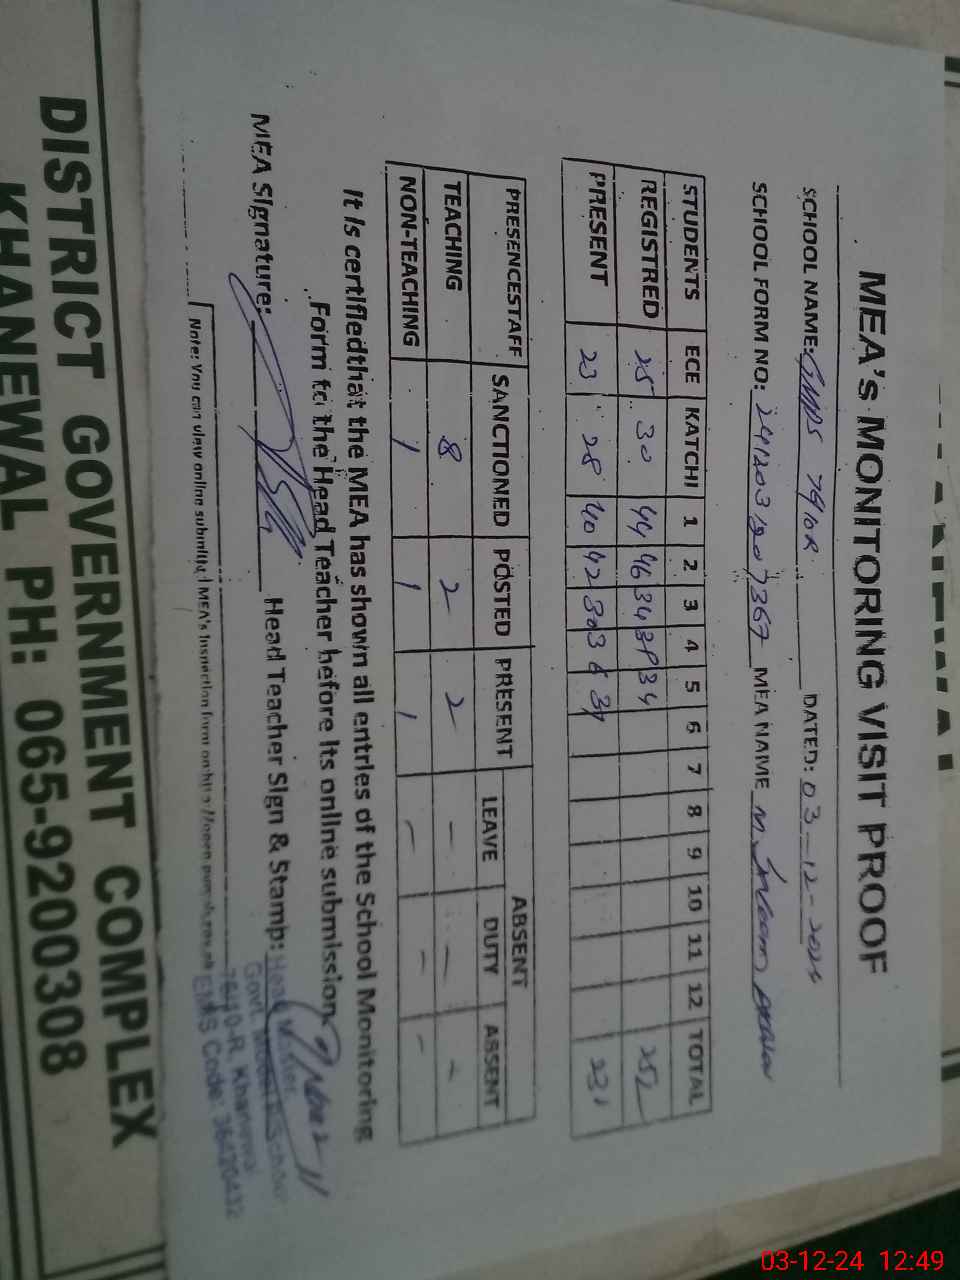 MEA's MONITORING VISIT PROOF
SCHOOL NAME: GMPS 79/10R DATED: 03-12-2024
SCHOOL FORM NO: MEA NAME M.
STUDENTS ECE KATCHI 1 2 3 4 5 6 7 8 9 10 11 12 TOTAL
REGISTRED 25 30 44 46 34 39 34 252
PRESENT 23 28 40 42 30 36 231
PRESENCESTAFF SANCTIONED POSTED PRESENT ABSENT
LEAVE DUTY ABSENT
TEACHING 8 2 2 - - -
NON-TEACHING 1 1 1 - - -
It is certifiedthat the MEA has shown all entries of the School Monitoring
Form to the Head Teacher before its online submission.
MEA Signature: Head Teacher Sign & Stamp:
Head Master
Govt.
79/10-R, Khanewal
EMIS Code: 36420432
Note: You can view online submitted MEA's Inspection form on
DISTRICT GOVERNMENT COMPLEX
KHANEWAL PH: 065-9200308
03-12-24 12:49